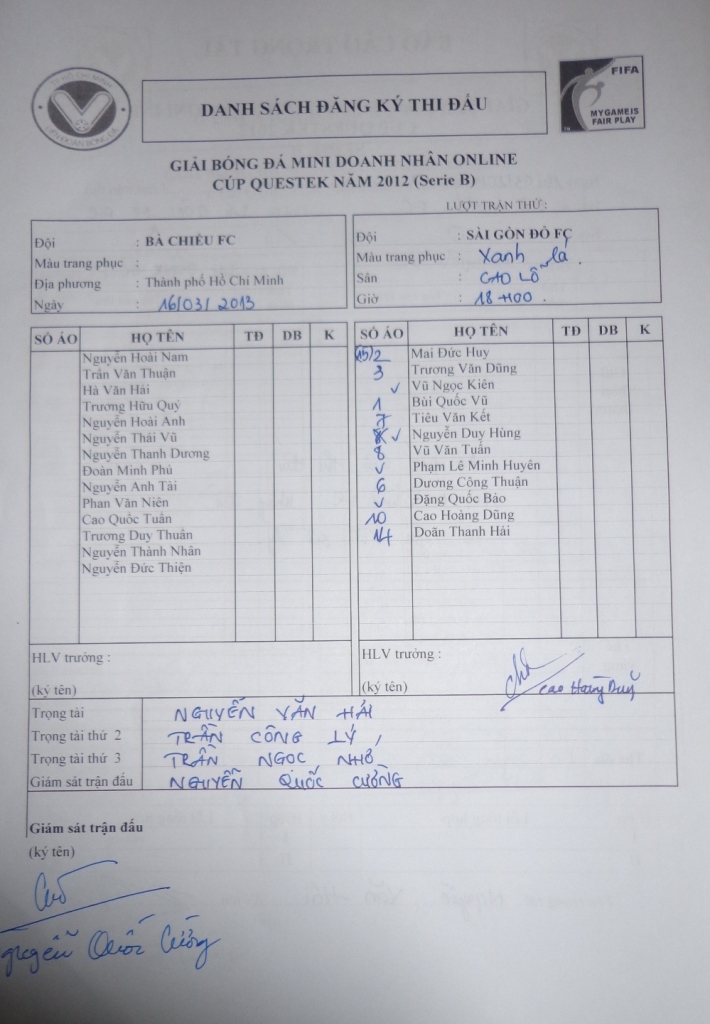 TP HỒ CHÍ MINH
LIÊN ĐOÀN BÓNG ĐÁ
DANH SÁCH ĐĂNG KÝ THI ĐẤU
FIFA
MY GAME IS
FAIR PLAY
GIẢI BÓNG ĐÁ MINI DOANH NHÂN ONLINE
CÚP QUESTEK NĂM 2012 (Serie B)
LƯỢT TRẬN THỨ :
Đội : BÀ CHIỂU FC
Màu trang phục :
Địa phương : Thành phố Hồ Chí Minh
Ngày : 16/03/2013
Đội : SÀI GÒN ĐỎ FC
Màu trang phục : Xanh lá.
Sân : CAO LỖ
Giờ : 18H00.
SỐ ÁO HỌ TÊN TĐ DB K
Nguyễn Hoài Nam
Trần Văn Thuận
Hà Văn Hải
Trương Hữu Quý
Nguyễn Hoài Anh
Nguyễn Thái Vũ
Nguyễn Thanh Dương
Đoàn Minh Phú
Nguyễn Anh Tài
Phan Văn Niên
Cao Quốc Tuấn
Trương Duy Thuần
Nguyễn Thành Nhân
Nguyễn Đức Thiện
SỐ ÁO HỌ TÊN TĐ DB K
(15) 2 Mai Đức Huy
3 Trương Văn Dũng
✓ Vũ Ngọc Kiên
1 Bùi Quốc Vũ
7 Tiêu Văn Kết
✓ Nguyễn Duy Hùng
8 Vũ Văn Tuấn
✓ Phạm Lê Minh Huyên
6 Dương Công Thuận
✓ Đặng Quốc Bảo
10 Cao Hoàng Dũng
14 Doãn Thanh Hải
HLV trưởng :
(ký tên)
HLV trưởng :
(ký tên) Cao Hoàng Duy
Trọng tài NGUYỄN VĂN HẢI
Trọng tài thứ 2 TRẦN CÔNG LÝ
Trọng tài thứ 3 TRẦN NGỌC NHỚ
Giám sát trận đấu NGUYỄN QUỐC CƯỜNG
Giám sát trận đấu
(ký tên)
Nguyễn Quốc Cường